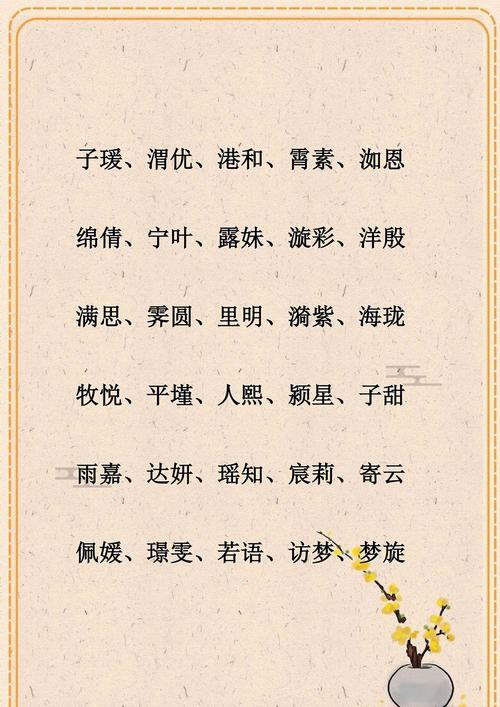 子瑗、渭优、港和、霄素、洳恩
绵倩、宁叶、露妹、漩彩、洋殷
满思、霁圆、里明、漪紫、海珑
牧悦、平墐、人熙、颍星、子甜
雨嘉、达妍、瑶知、宸莉、寄云
佩媛、璟雯、若语、访梦、梦旋